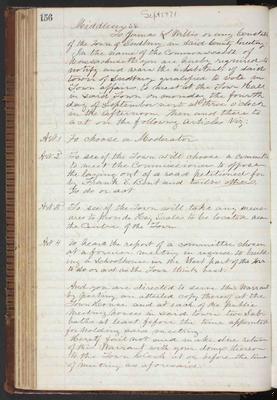 156
Sept 1871
Middlesex ss
To James L. Willis or any Constable
of the Town of Sudbury in said County Greeting
In the name of the Commonwealth of
Massachusetts you are hereby required to
notify and warn the inhabitants of said
town of Sudbury qualified to vote in
Town affairs to meet at the Town Hall
in said Town on Monday the fourth
day of September next at three o'clock
in the afternoon then and there to
act on the following Articles Viz:
Art 1 To choose a Moderator
Art 2 To see if the Town will choose a Committee
to meet the Commissioners to oppose
the laying out of a road petitioned for
by Frank E. Bent and twelve others
to do or act
Art 3 To see if the Town will take any meas-
ures to provide Hay Scales to be located near
the Centre of the Town
Art 4 To hear the report of a committee chosen
at a former meeting in regard to build-
ing a Schoolhouse in the West part of the
to do or act as the Town think best
And you are directed to serve this Warrant
by posting an attested copy thereof at the
Town House and at each of the Public
Meeting houses in said town two Sab-
baths at least before the time appointed
for holding said meeting
Hereof fail not and make due return
of this Warrant with your doings thereon
to the Town Clerk at or before the time
of meeting as aforesaid